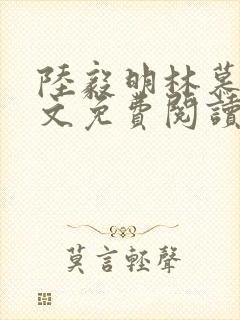 陸毅明林慕
文免費閱讀
莫言輕聲